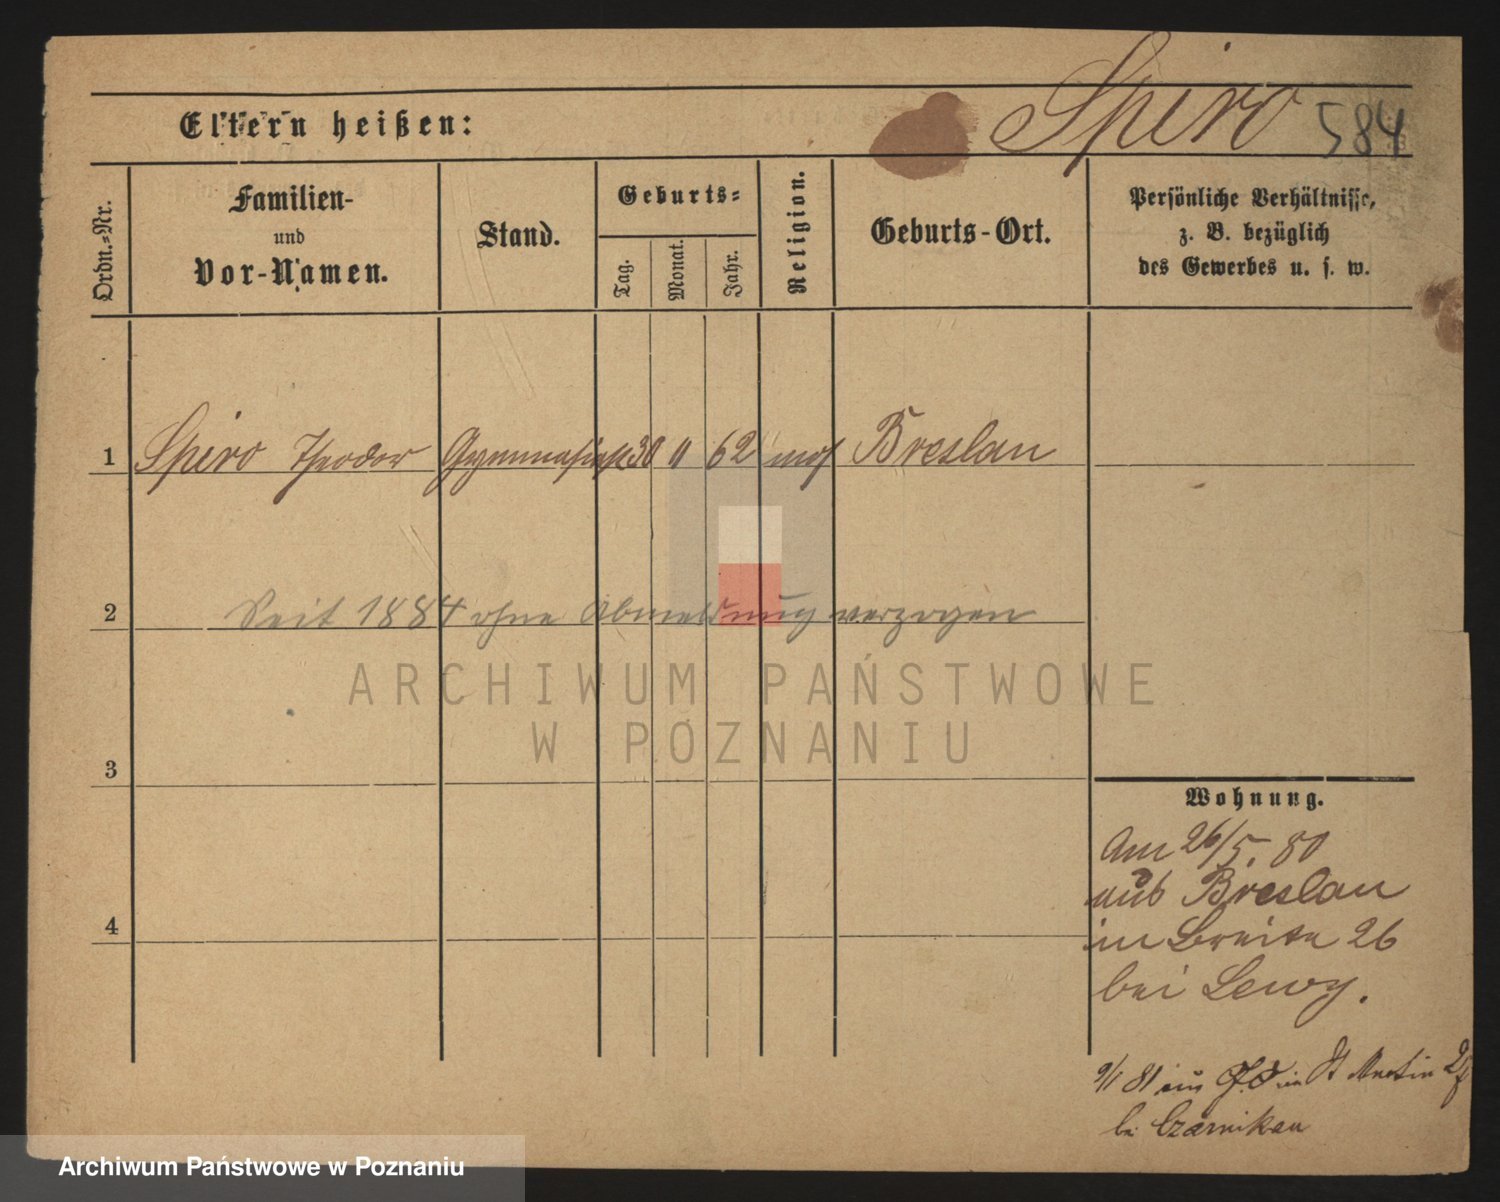 Eltern heißen: Spiro 584
Ordn.-Nr.
Familien-
und
Vor-Namen.
Stand.
Geburts-
Tag.
Monat.
Jahr.
Religion.
Geburts-Ort.
Persönliche Verhältnisse,
z. B. bezüglich
des Gewerbes u. s. w.
1 Spiro Theodor Gymnasiast 30 11 62 mos Breslau
2 Seit 1884 ohne Abmeldung verzogen
ARCHIWUM PAŃSTWOWE
W POZNANIU
3
4
Wohnung.
Am 26/5. 80
aus Breslau
in Breite 26
bei Lewy.
81 aus in St Martin
bei Czarnikau
Archiwum Państwowe w Poznaniu